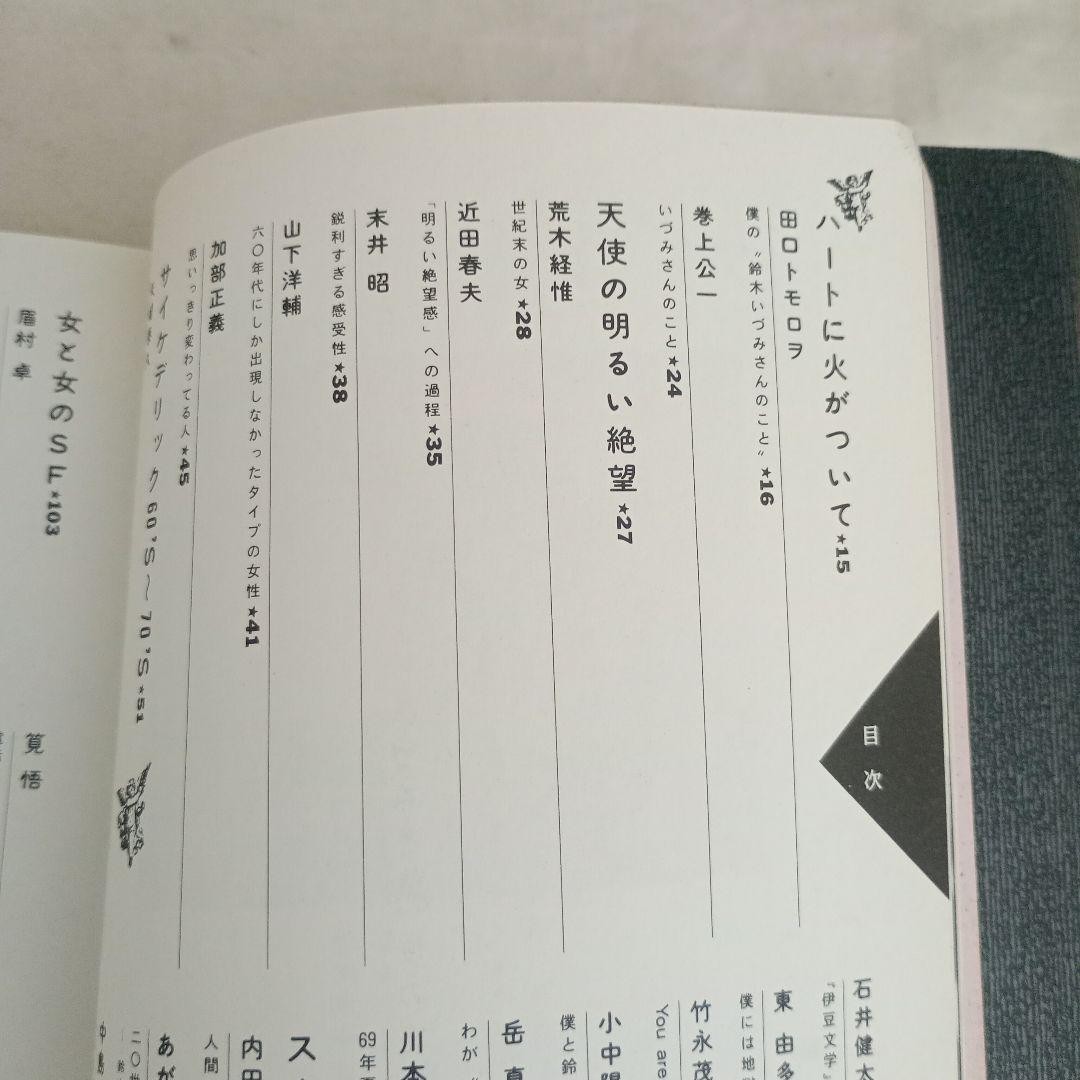 目次
ハートに火がついて★15
田口トモロヲ
僕の〝鈴木いづみさんのこと〟★16
巻上公一
いづみさんのこと★24
天使の明るい絶望★27
荒木経惟
世紀末の女★28
近田春夫
「明るい絶望感」への過程★35
末井 昭
鋭利すぎる感受性★38
山下洋輔
六〇年代にしか出現しなかったタイプの女性★41
加部正義
思いっきり変わってる人★45
サイケデリック60'S〜70'S★51
石井健太
『伊豆文学』
東 由多
僕には地
竹永茂
You are
小中陽
僕と鈴
岳 真
わが
川本
69年
ス
内田
人間
あが
二〇
中島
女と女のSF★103
眉村 卓
筧 悟